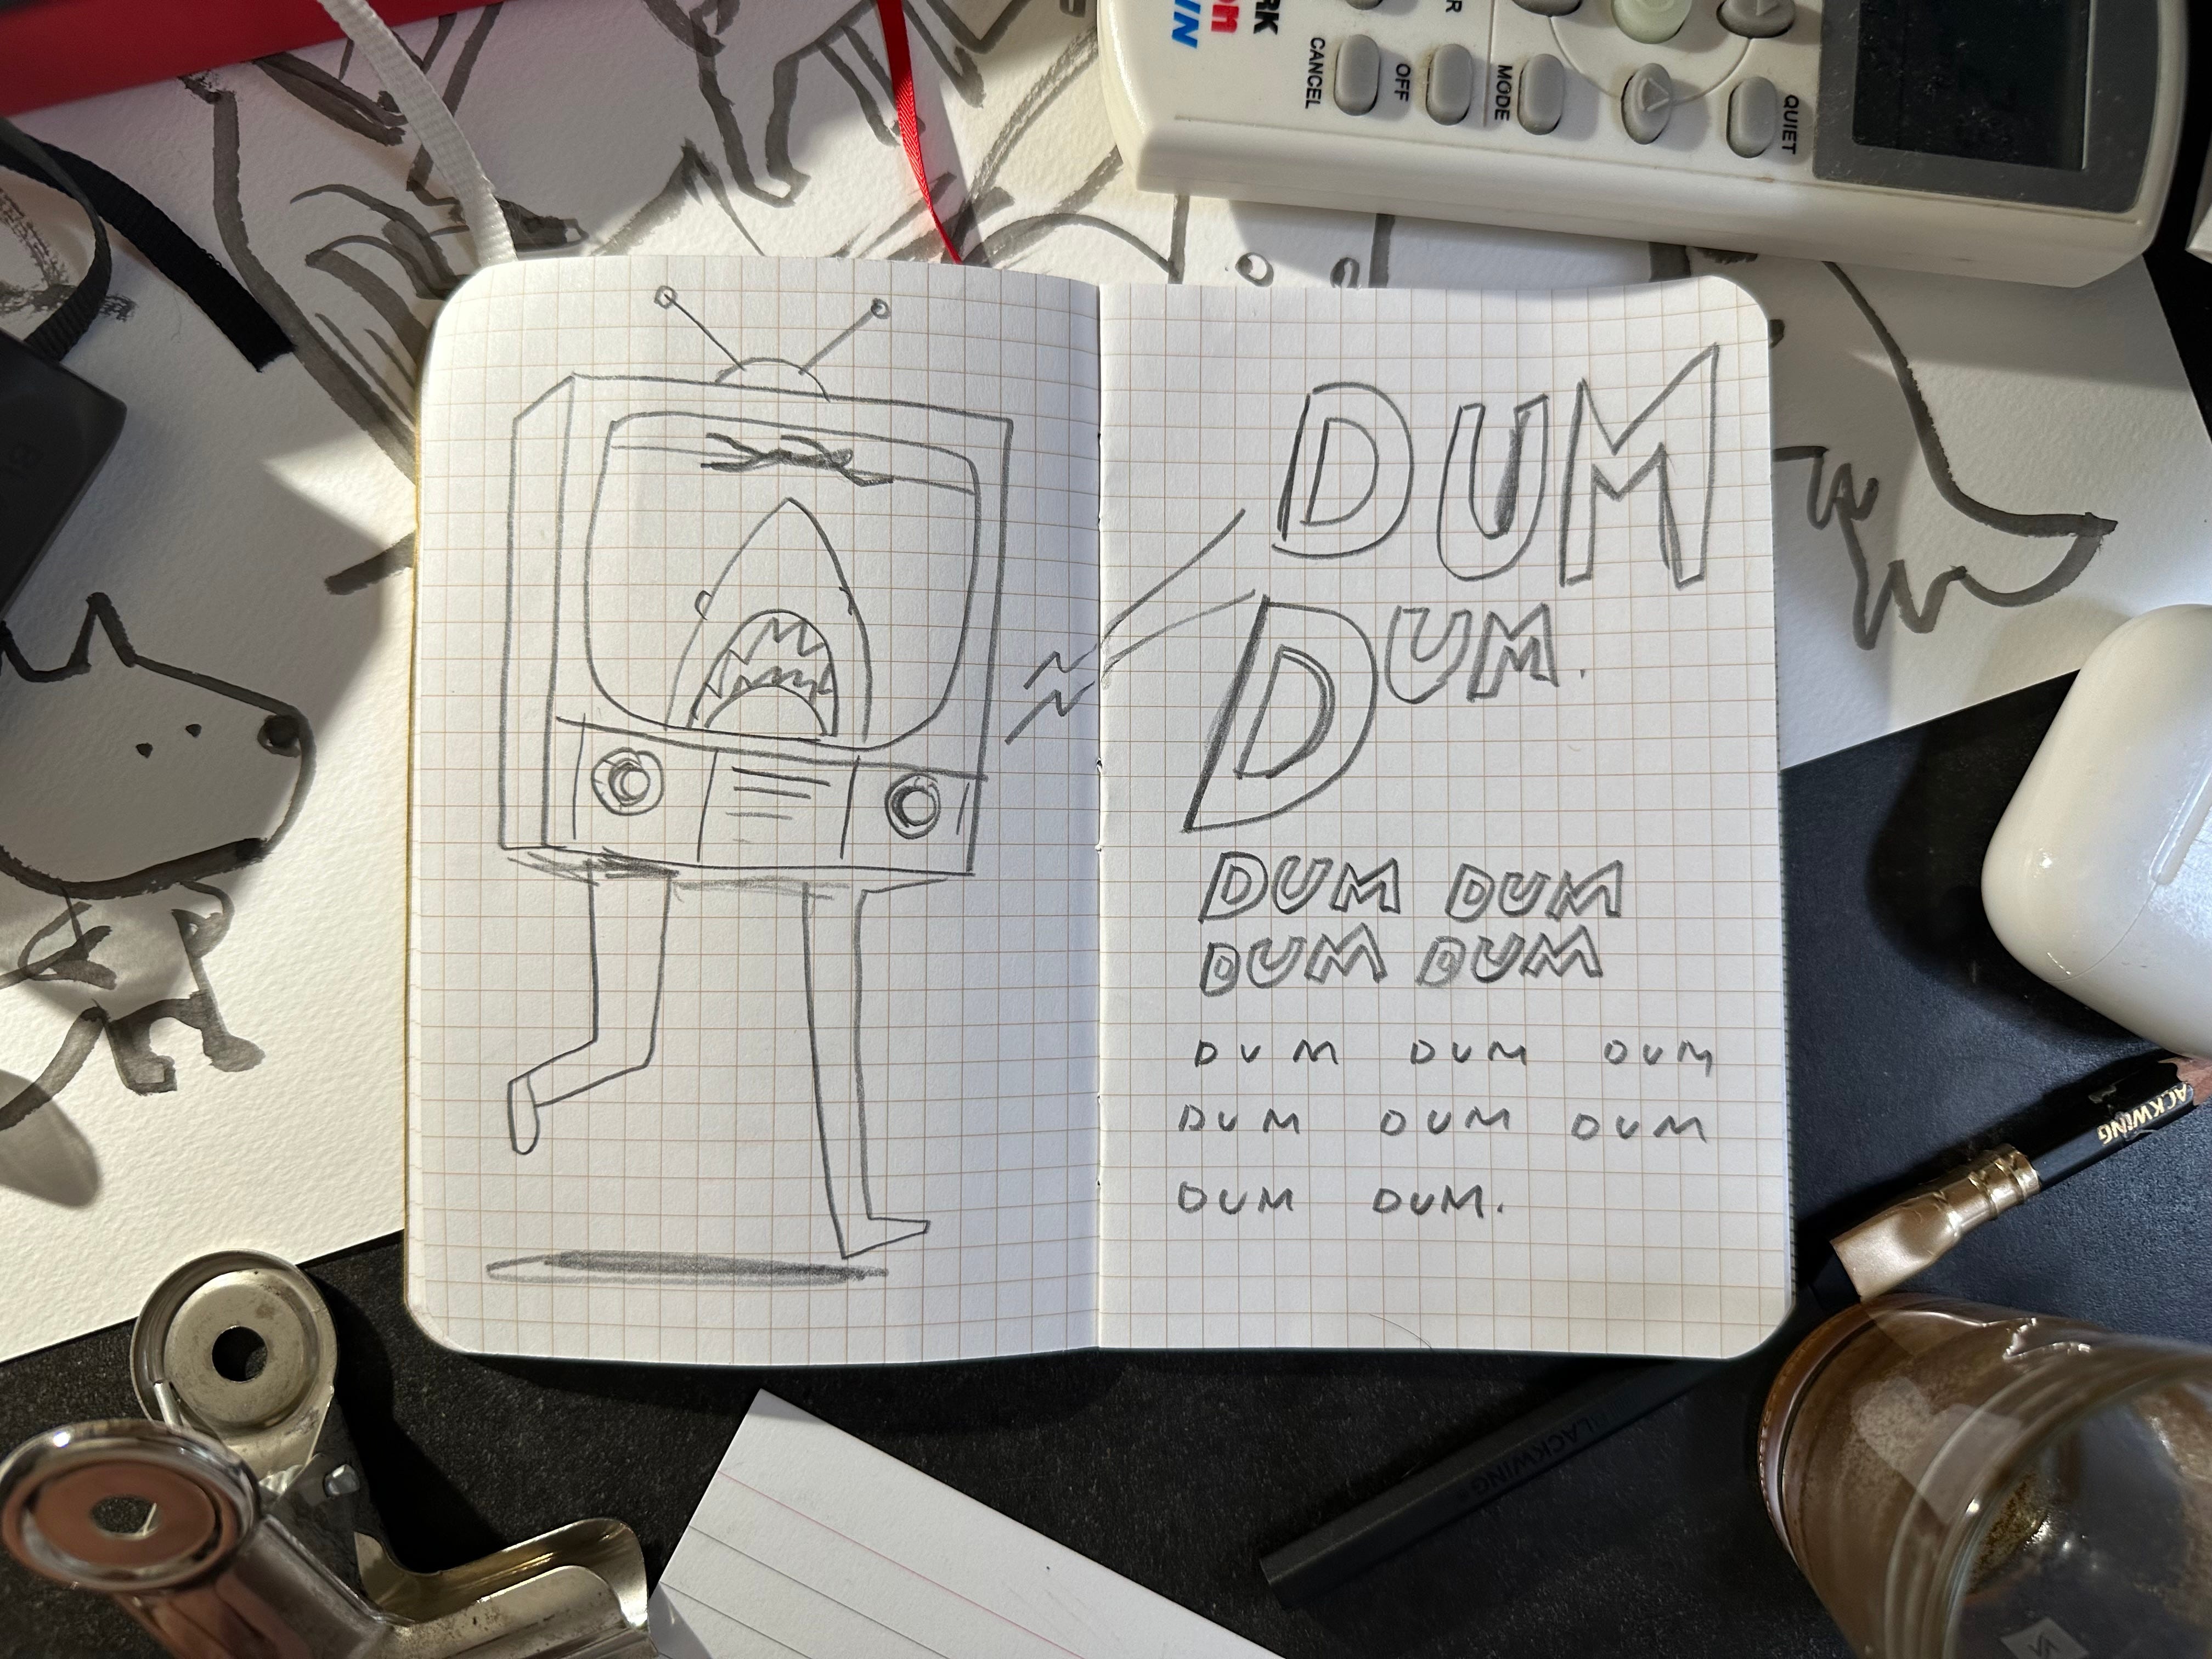 CANCEL
OFF
MODE
QUIET
DUM
DUM.
DUM DUM
DUM DUM
DUM DUM DUM
DUM DUM DUM
DUM DUM.
ACKWING
BLACKWING